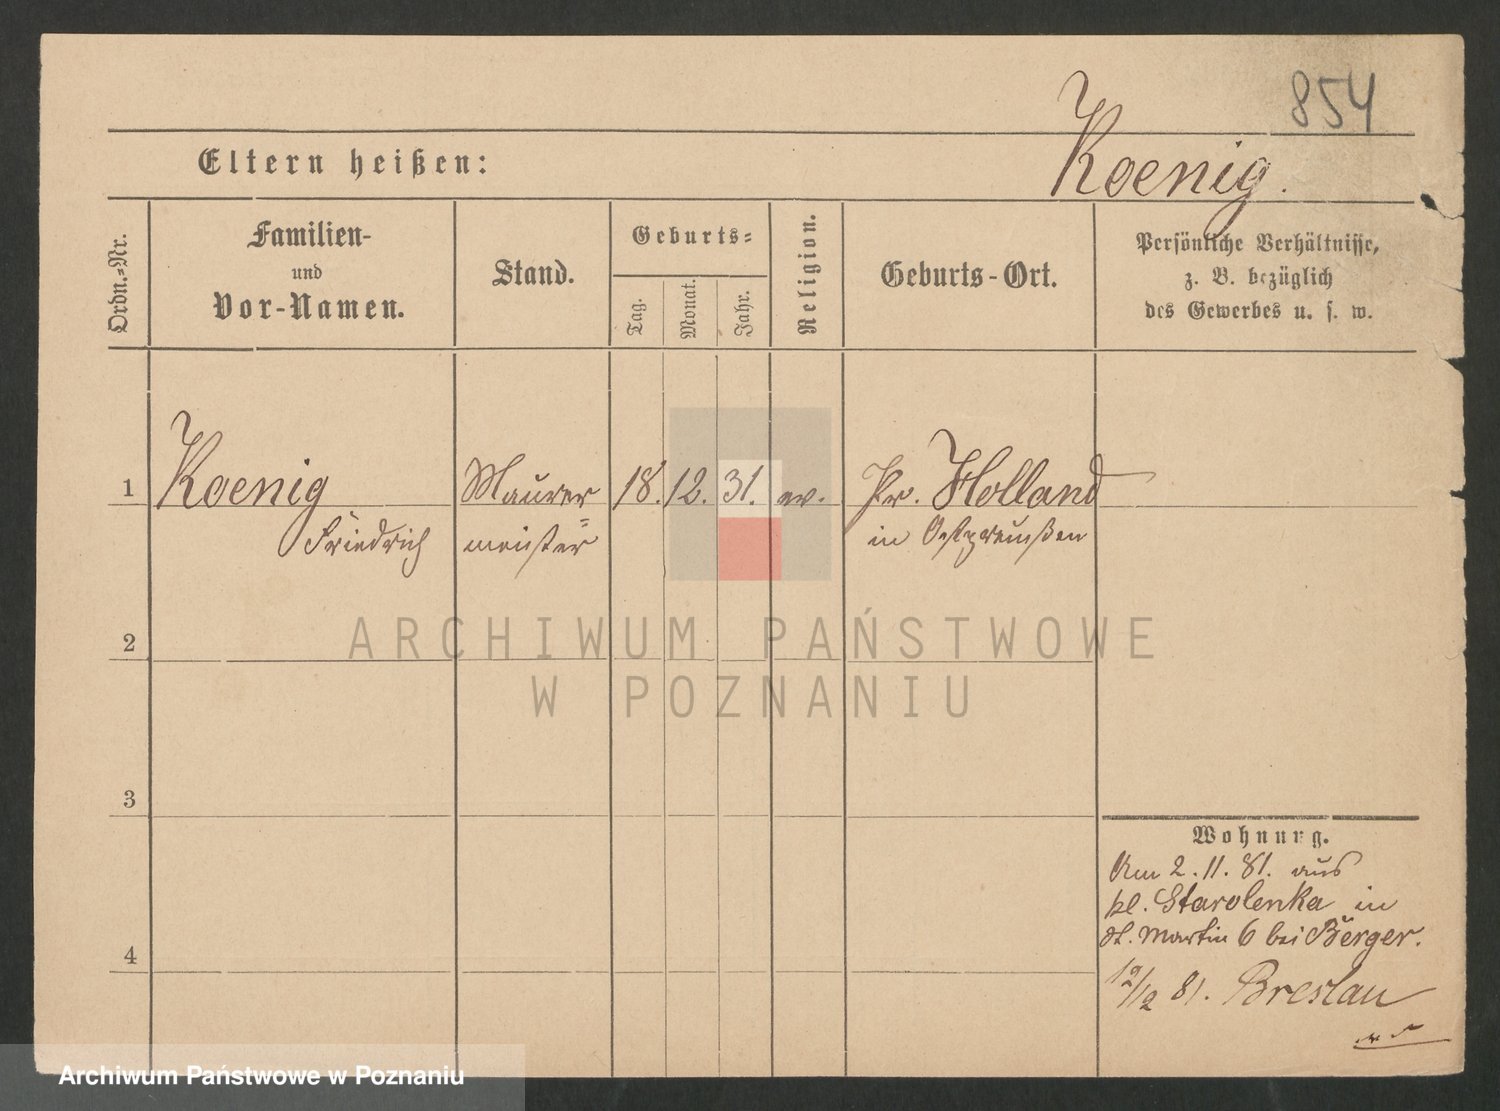 854
Eltern heißen:
Koenig.
Ordn.=Nr.
Familien-
und
Vor-Namen.
Stand.
Geburts=
Tag.
Monat.
Jahr.
Religion.
Geburts-Ort.
Persönliche Verhältnisse,
z. B. bezüglich
des Gewerbes u. s. w.
1 Koenig Maurer 18. 12. 31. ev. Pr. Holland
Friedrich meister in Ostpreußen
2
3
4
Wohnung.
Am 2. 11. 81. aus
kl. Starolenka in
St. Martin 6 bei Berger.
12/12 81. Breslau
ARCHIWUM PAŃSTWOWE
W POZNANIU
Archiwum Państwowe w Poznaniu